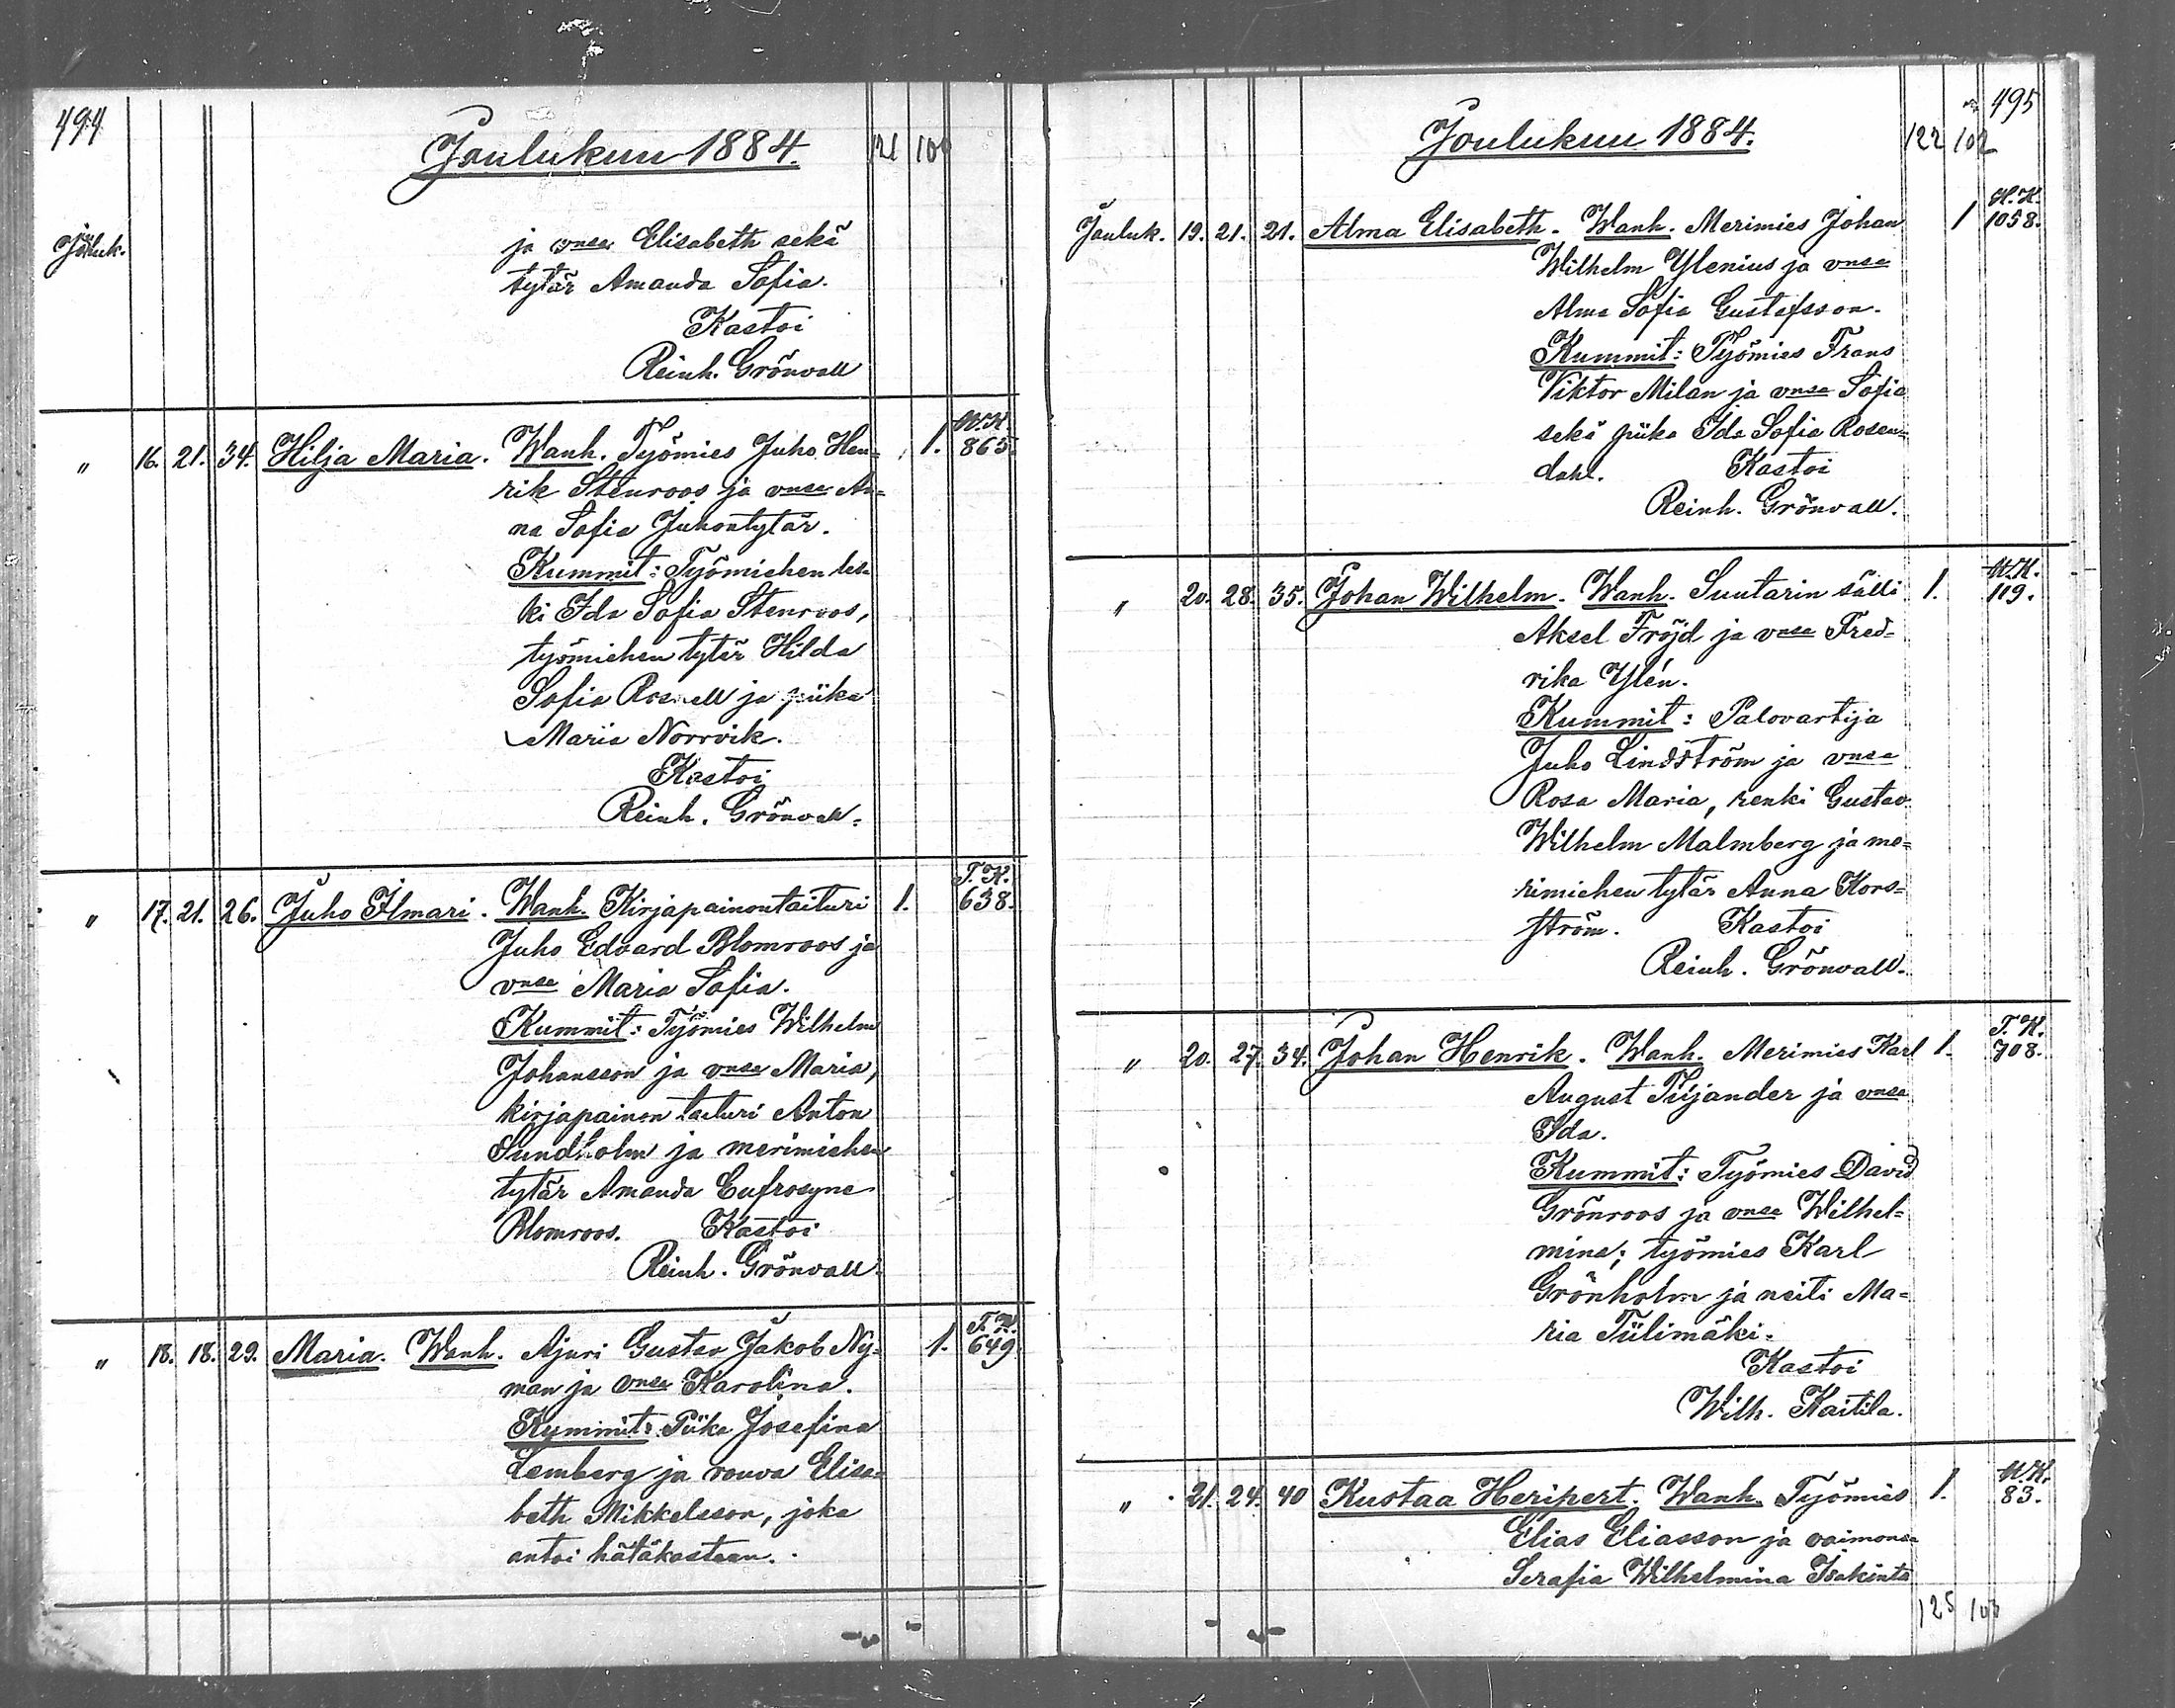 494
Joulukuu 1884.
121 100
Jouluk.
ja vnsa Elisabeth sekä
tytär Amanda Sofia.
Kastoi
Reinh. Grönvall
" 16. 21. 34. Hilja Maria. Wanh. Työmies Juho Hen= 1. W.K. 865.
rik Stenroos ja vnsa An=
na Sofia Juhontytär.
Kummit: Työmiehen les=
ki Ida Sofia Stenroos,
työmiehen tytär Hilda
Sofia ja piika
Maria Norrvik.
Kastoi
Reinh. Grönvall.
" 17. 21. 26. Juho Ilmari. Wanh. Kirjapainontaituri 1. T.K. 638.
Juho Edvard Blomroos ja
vnsa Maria Sofia.
Kummit: Työmies Wilhelm
Johansson ja vnsa Maria,
kirjapainon taituri Anton
Sundholm ja merimiehen
tytär Amanda Eufrosyne
Blomroos. Kastoi
Reinh. Grönvall.
" 18. 18. 29. Maria. Wanh. Ajuri Gustav Jakob Ny= 1. 649
man ja vnsa Karolina.
Kymmit: Piika Josefina
Lemberg ja rouva Elisa=
beth Mikkelsson, joka
antoi hätäkasteen.
495
Joulukuu 1884.
122 102
Jouluk. 19. 21. 21. Alma Elisabeth. Wanh. Merimies Johan 1 H.K. 1058.
Wilhelm Ylenius ja vnsa
Alma Sofia Gustafsson.
Kummit: Työmies Frans
Viktor Milan ja vnsa Sofia
sekä piika Ida Sofia Rosen=
dahl. Kastoi
Reinh. Grönvall.
" 20. 28. 35. Johan Wilhelm. Wanh. Suutarin sälli 1. W.K. 119.
Aksel Fröjd ja vnsa Fred=
rika Ylén.
Kummit: Palovartija
Juho Lindström ja vnsa
Rosa Maria, renki Gustav
Wilhelm Malmberg ja me=
rimiehen tytär Anna Kors=
ström. Kastoi
Reinh. Grönvall.
" 20. 27. 34. Johan Henrik. Wanh. Merimies Karl 1. T.K. 708.
August Tiijander ja vnsa
Ida.
Kummit: Työmies David
Grönroos ja vnsa Wilhel=
mina; työmies Karl
Grönholm ja neiti Ma=
ria Tiilimäki.
Kastoi
Wilh. Kaitila.
" 21. 24. 40 Kustaa Heripert. Wanh. Työmies 1. W.K. 83.
Elias Eliasson ja vaimonsa
Serafia Wilhelmina Isakinta
125 103